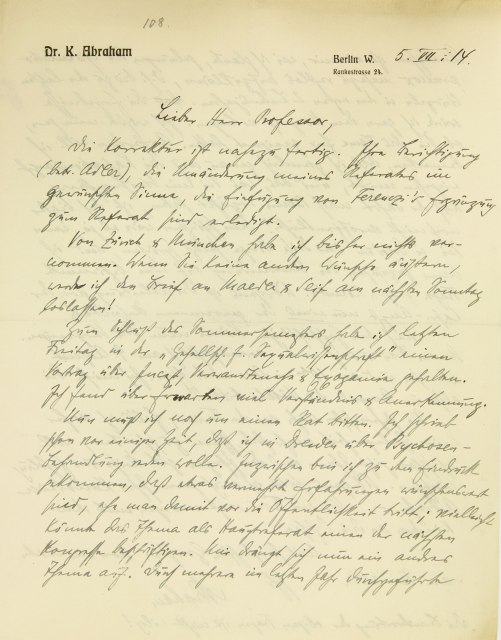 108.
Dr. K. Abraham
Berlin W. 5. VII. 14.
Rankestrasse 24.
Lieber Herr Professor,
die Korrektur ist nahezu fertig. Ihre Berichtigung
(betr. Adler), die Umänderung meines Referates im
gewünschten Sinne, die Einfügung von Ferenczi's Ergänzung
zum Referat sind erledigt.
Von Zürich & München habe ich bisher nichts ver-
nommen. Wenn Sie keine andern Wünsche äußern,
werde ich den Brief an Maeder & Seif am nächsten Sonntag
loslassen!
Zum Schluß des Sommersemesters habe ich letzten
Freitag in der „Gesellsch. f. Sexualwissenschaft" einen
Vortrag über Inzest, Verwandtenehe & Exogamie gehalten.
Ich fand über Erwarten viel Verständnis & Anerkennung.
Nun muß ich noch um einen Rat bitten. Ich schrieb
schon vor einiger Zeit, daß ich in Dresden über Psychosen-
behandlung reden wolle. Inzwischen bin ich zu dem Eindruck
gekommen, daß etwas vermehrte Erfahrungen wünschenswert
sind, ehe man damit vor die Öffentlichkeit tritt; vielleicht
könnte das Thema als Hauptreferat einen der nächsten
Kongresse beschäftigen. Mir drängt sich nun ein andres
Thema auf. Durch mehrere im letzten Jahr durchgeführte